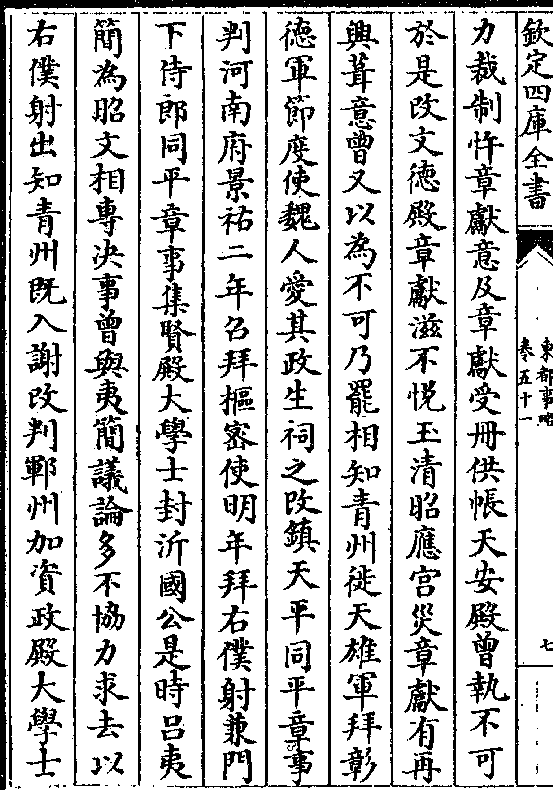 欽定四庫全書
東都事略
卷五十一
七
力裁制忤章獻意及章獻受冊供帳天安殿曾執不可
於是改文德殿章獻滋不悅玉清昭應宫災章獻有再
興葺意曾又以為不可乃罷相知青州徙天雄軍拜彰
德軍節度使魏人愛其政生祠之改鎮天平同平章事
判河南府景祐二年召拜樞密使明年拜右僕射兼門
下侍郎同平章事集賢殿大學士封沂國公是時吕夷
簡為昭文相專決事曾與夷簡議論多不協力求去以
右僕射出知青州既入謝改判鄆州加資政殿大學士